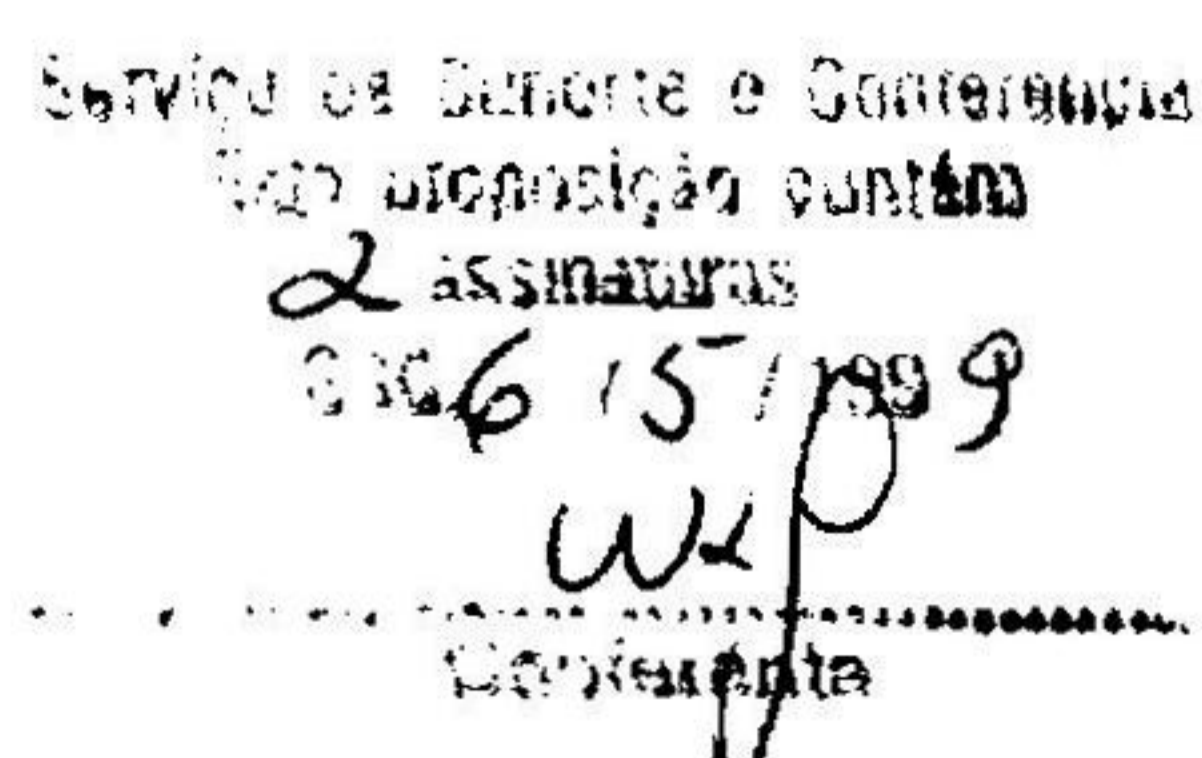 Serviço de Suporte e Conferencia
proposição contém
2 assinaturas
6 / 5 / 1999
Conferente